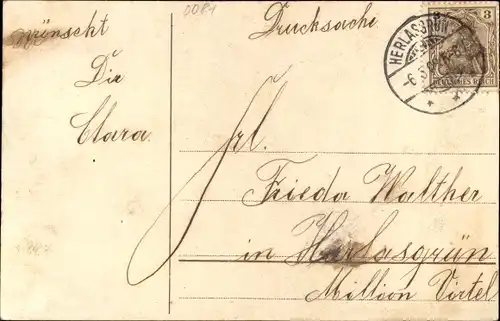 wünscht
Dir
Clara.
0084
Drucksache
HERLASGRÜN
3
DEUTSCHES REICH
Frl.
Frieda Walther
in Herlasgrün
Million Virtel